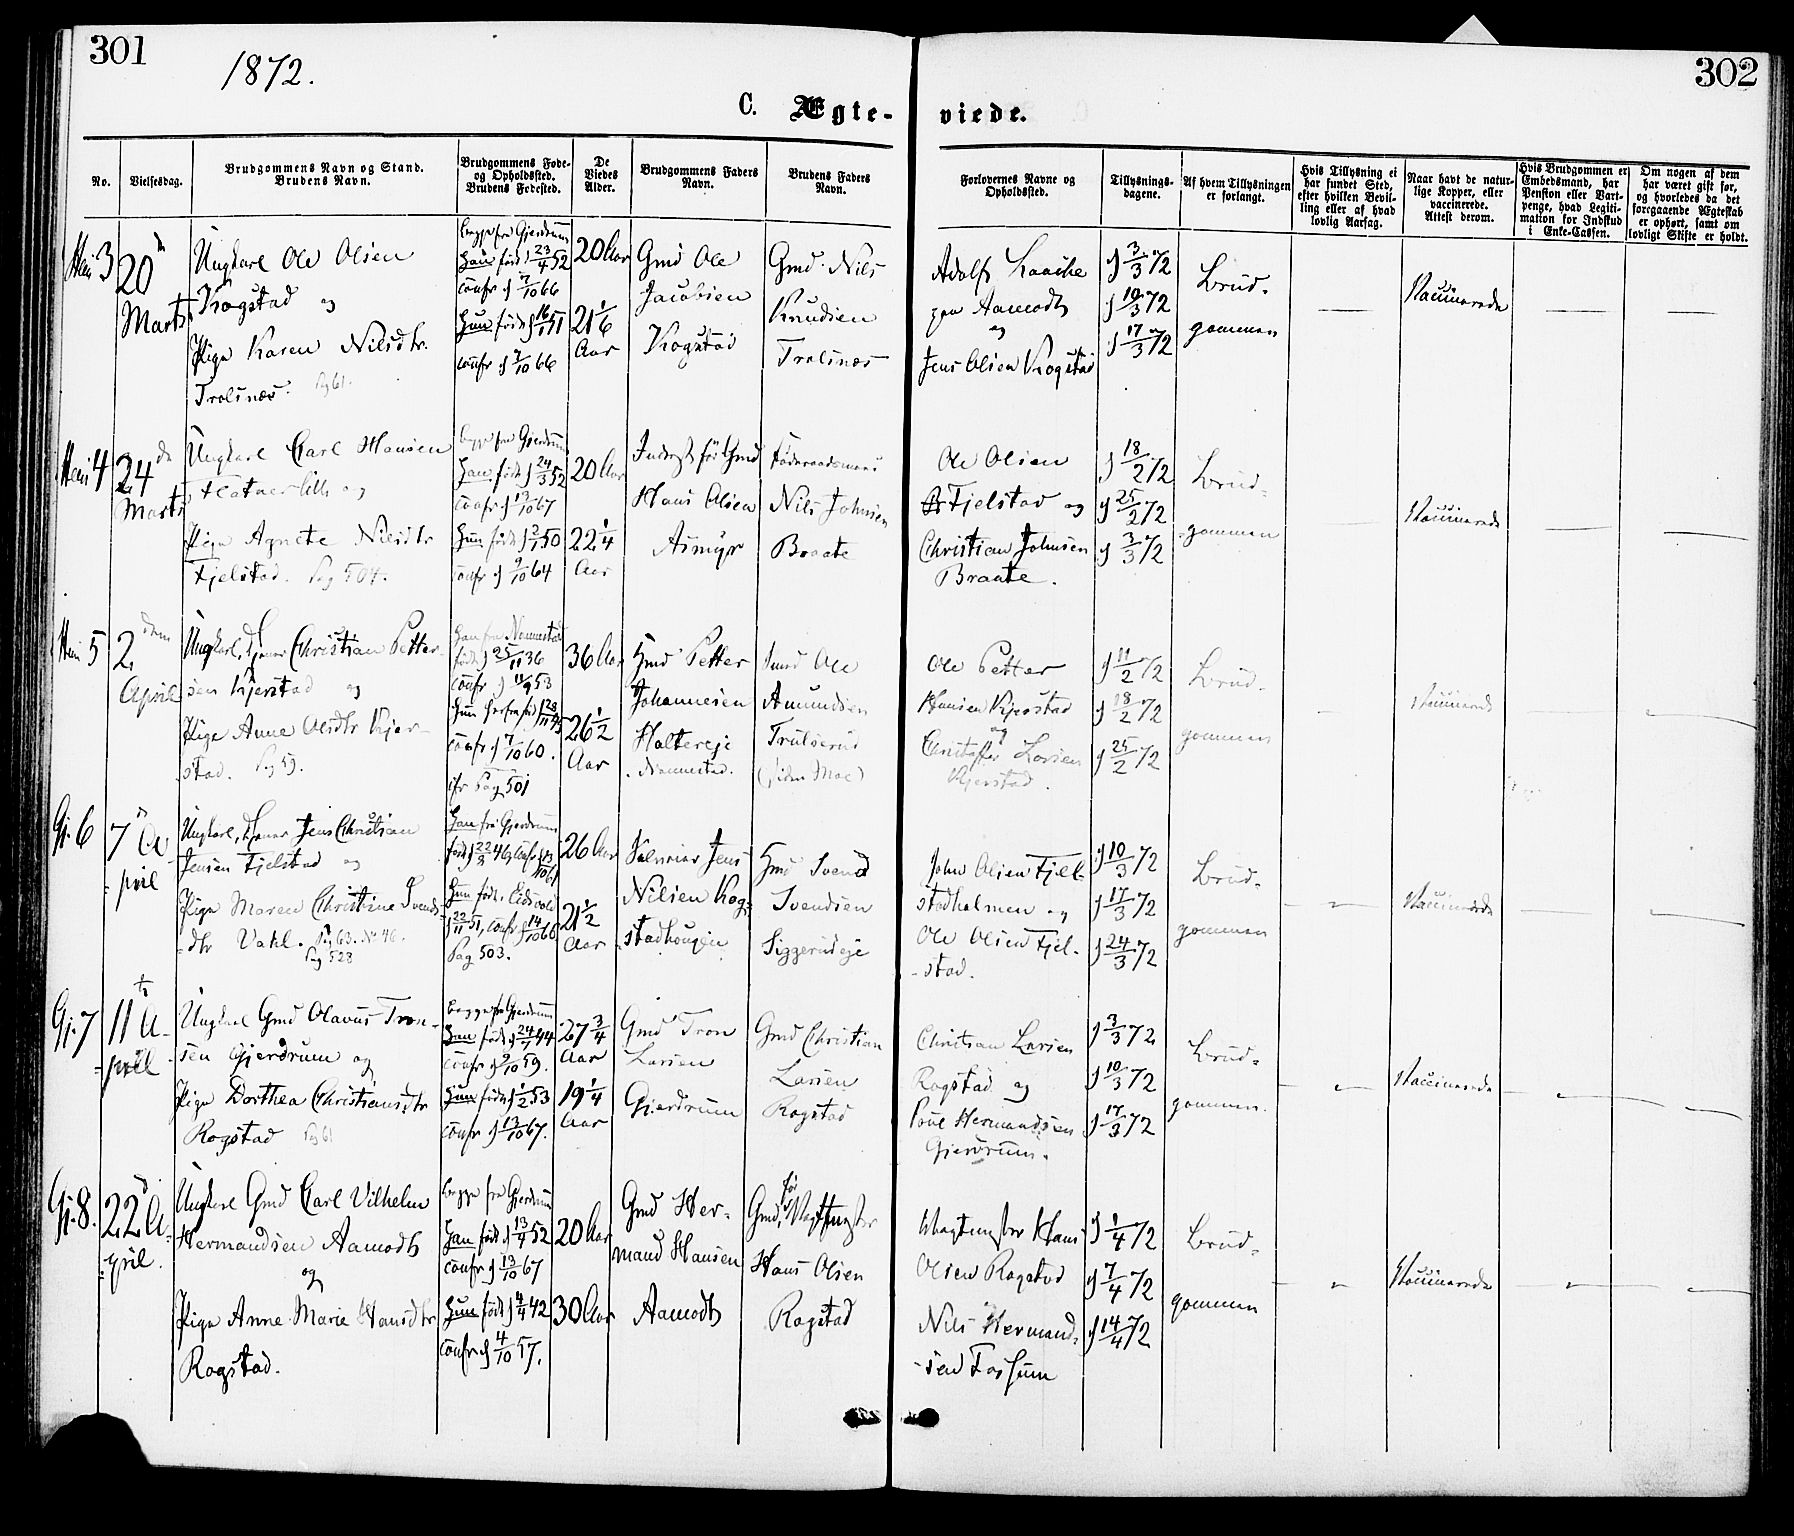 301
1872.
302
C. Ægte-
viede.
No.
Vielsesdag.
Brudgommens Navn og Stand.
Brudens Navn.
Brudgommens Føde-
og Opholdssted.
Brudens Fødested.
De
Viedes
Alder.
Brudgommens Faders
Navn.
Brudens Faders
Navn.
Forlovernes Navne og
Opholdssted.
Tillysnings-
dagene.
Af hvem Tillysningen
er forlangt.
Hvis Tillysning ei
har fundet Sted,
efter hvilken Bevil-
ling eller af hvad
lovlig Aarsag.
Naar havt de natur-
lige Kopper, eller
vaccinerede.
Attest derom.
Hvis Brudgommen er
Embedsmand, har
Pension eller Vart-
penge, hvad Legiti-
mation for Indskud
i Enke-Cassen.
Om nogen af dem
har været gift før,
og hvorledes da det
foregaaende Ægteskab
er ophørt, samt om
lovligt Skifte er holdt.
3
20
Marts
Ungkarl Ole Olsen
Kogstad og
Pige Karen Nilsdtr.
Trolsnæs. Pag 61.
begge fra Gjerdrum
Han født 23/4 52
confr d 7/10 66
Hun født d 16/1 51
confr d 7/10 66
20 Aar
21 1/6
Aar
Gmd Ole
Jacobsen
Kogstad
Gmd. Nils
Knudsen
Trolsnæs
Adolf Laache
paa Aamodt
og
Jens Olsen Kogstad
d 3/3 72
d 10/3 72
d 17/3 72
Brud-
gommen
Vaccinerede
4
24 de
Marts
Ungkarl Carl Hansen
og
Pige Agnete Nilsdtr
Fjelstad. Pag 504.
begge fra Gjerdrum
Han født d 24/3 52
confr d 13/10 67
Hun født d 2/1 50
confr d 9/10 64
20 Aar
22 1/4
Aar
Hans Olsen
Asmyr
Føderaadsmand
Nils Johnsen
Braate
Ole Olsen
Fjelstad og
Christian Johnsen
Braate.
d 18/2 72
d 25/2 72
d 3/3 72
Brud-
gommen
Vaccinerede
5
2 den
April
Ungkarl, Tjener Christian Petter-
sen Kjerstad og
Pige Anne Olsdtr Kjer-
stad. Pag 59.
Han fra Nannestad
født d 25/11 36
confr d 11/9 53
Hun herfra født 28/11 45
confr d 7/10 60.
cfr Pag 501
36 Aar
26 1/2
Aar
Gmd Petter
Johannesen
Holtereie
Nannestad.
Gmd Ole
Amundsen
Trulserud
(siden Moe)
Ole Petter
Hansen Kjerstad
og
Christoffer Larsen
Kjerstad.
d 11/2 72
d 18/2 72
d 25/2 72
Brud-
gommen
Vaccinerede
Gj. 6
7 A-
pril
Ungkarl, Tjener Jens Christian
Jensen Fjelstad og
Pige Maren Christine Svends-
dtr Vahl. Pag 63. No 46.
Pag 528
Han fra Gjerdrum
Hun født i Eidsvold
22/11 51, confr d 14/10 66
Pag 503.
26 Aar
21 1/2
Aar
Jens
Nilsen Kog-
stadhougen
Gmd Svend
Svendsen
Siggerudeje
John Olsen Fjel-
stadholmen og
Ole Olsen Fjel-
stad.
d 10/3 72
d 17/3 72
d 24/3 72
Brud-
gommen
Vaccinerede
Gj. 7
11 A-
pril
Ungkarl Gmd Olavus Tron-
sen Gjerdrum og
Pige Dorthea Christiansdtr
Rogstad Pag 61
begge fra Gjerdrum
Han født d 24/7 44
confr d 9/10 59.
Hun født d 1/2 53
confr d 13/10 67.
27 3/4
Aar
19 1/4
Aar
Gmd Tron
Larsen
Gjerdrum
Gmd Christian
Larsen
Rogstad
Christian Larsen
Rogstad og
Poul Hermandsen
Gjerdrum.
d 3/3 72
d 10/3 72
d 17/3 72
Brud-
gommen.
Vaccinerede
Gj. 8.
22 A-
pril.
Ungkarl Gmd Carl Vilhelm
Hermandsen Aamodt
og
Pige Anne Marie Hansdtr
Rogstad.
begge fra Gjerdrum
Han født d 13/4 52
confr d 13/10 67
Hun født d 4/4 42
confr d 4/10 57.
20 Aar
30 Aar
Gmd Her-
mand Hansen
Aamodt
Gmd, før Vagtmester
Hans Olsen
Rogstad
Vagtmester Hans
Olsen Rogstad
Nils Hermand-
sen Fossum
d 1/4 72
d 7/4 72
d 14/4 72
Brud-
gommen
Vaccinerede